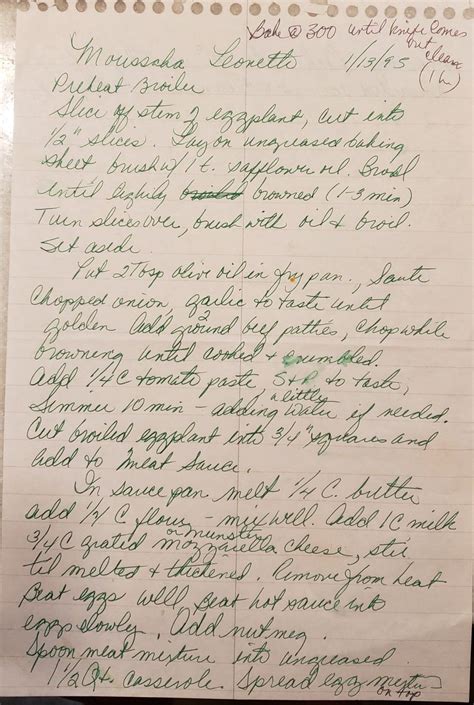 Bake @ 300 until knife comes
out clean
(1 h)
Mousssha Leonetti 1/13/95
Preheat Broiler
Slice off stem 2 eggplant, cut into
1/2" slices. Lay on ungreased baking
sheet brush w/ 1 t. safflower oil. Broil
until lightly browned (1-3 min)
Turn slices over, brush with oil & broil.
Set aside.
Put 2 Tbsp olive oil in fry pan., Saute
chopped onion, garlic to taste until
golden Add 2 ground beef patties, chop while
browning until cooked & crumbled.
Add 1/4 C tomato paste, S & P to taste,
Simmer 10 min - adding a little water if needed.
Cut broiled eggplant into 3/4" squares and
add to meat sauce.
In sauce pan melt 1/4 C. butter
add C flour - mix well. Add 1C milk
3/4 C grated mozzarella or munster cheese, stir
til melted & thickened. Remove from heat
Beat eggs well, beat hot sauce into
eggs slowly, Add nutmeg.
Spoon meat mixture into ungreased
1 1/2 Qt casserole. Spread egg mixture
on top